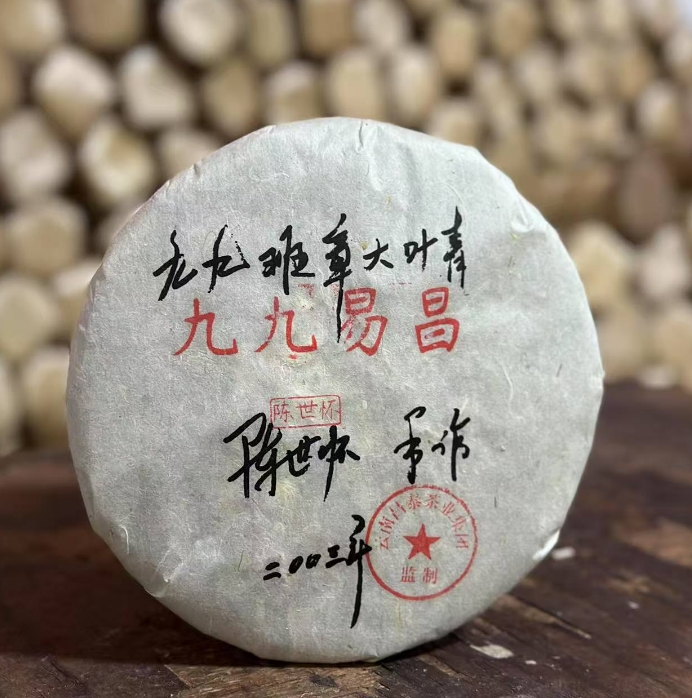 九九班章大叶青
九九易昌
陈世怀
陈世怀 手作
二00三年
云南昌泰茶业集团
监制